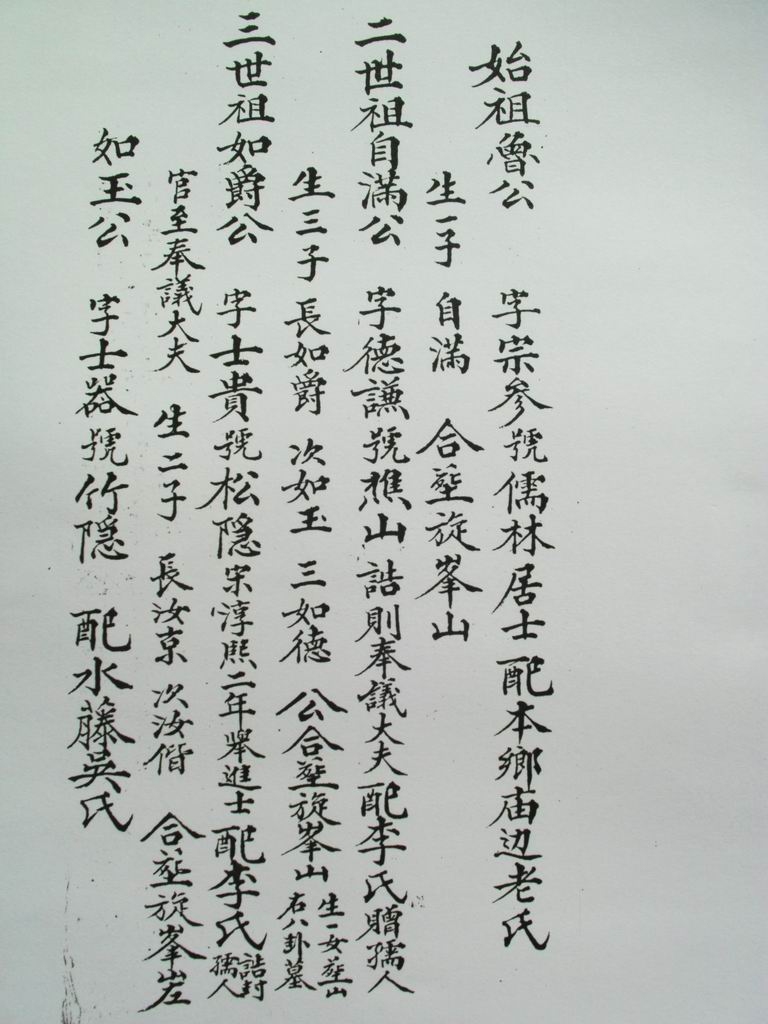 始祖魯公 字宗参號儒林居士 配本鄉庙边老氏
生一子 自滿 合塟旋峯山
二世祖自滿公 字德謙號樵山 誥則奉議大夫 配李氏 贈孺人
生三子 長如爵 次如玉 三如德 公合塟旋峯山 生一女塟山
右八卦墓
三世祖如爵公 字士貴號松隠 宋淳熙二年舉進士 配李氏 誥封
孺人
官至奉議大夫 生二子 長汝京 次汝偕 合塟旋峯岩
如玉公 字士器號竹隠 配水藤吳氏